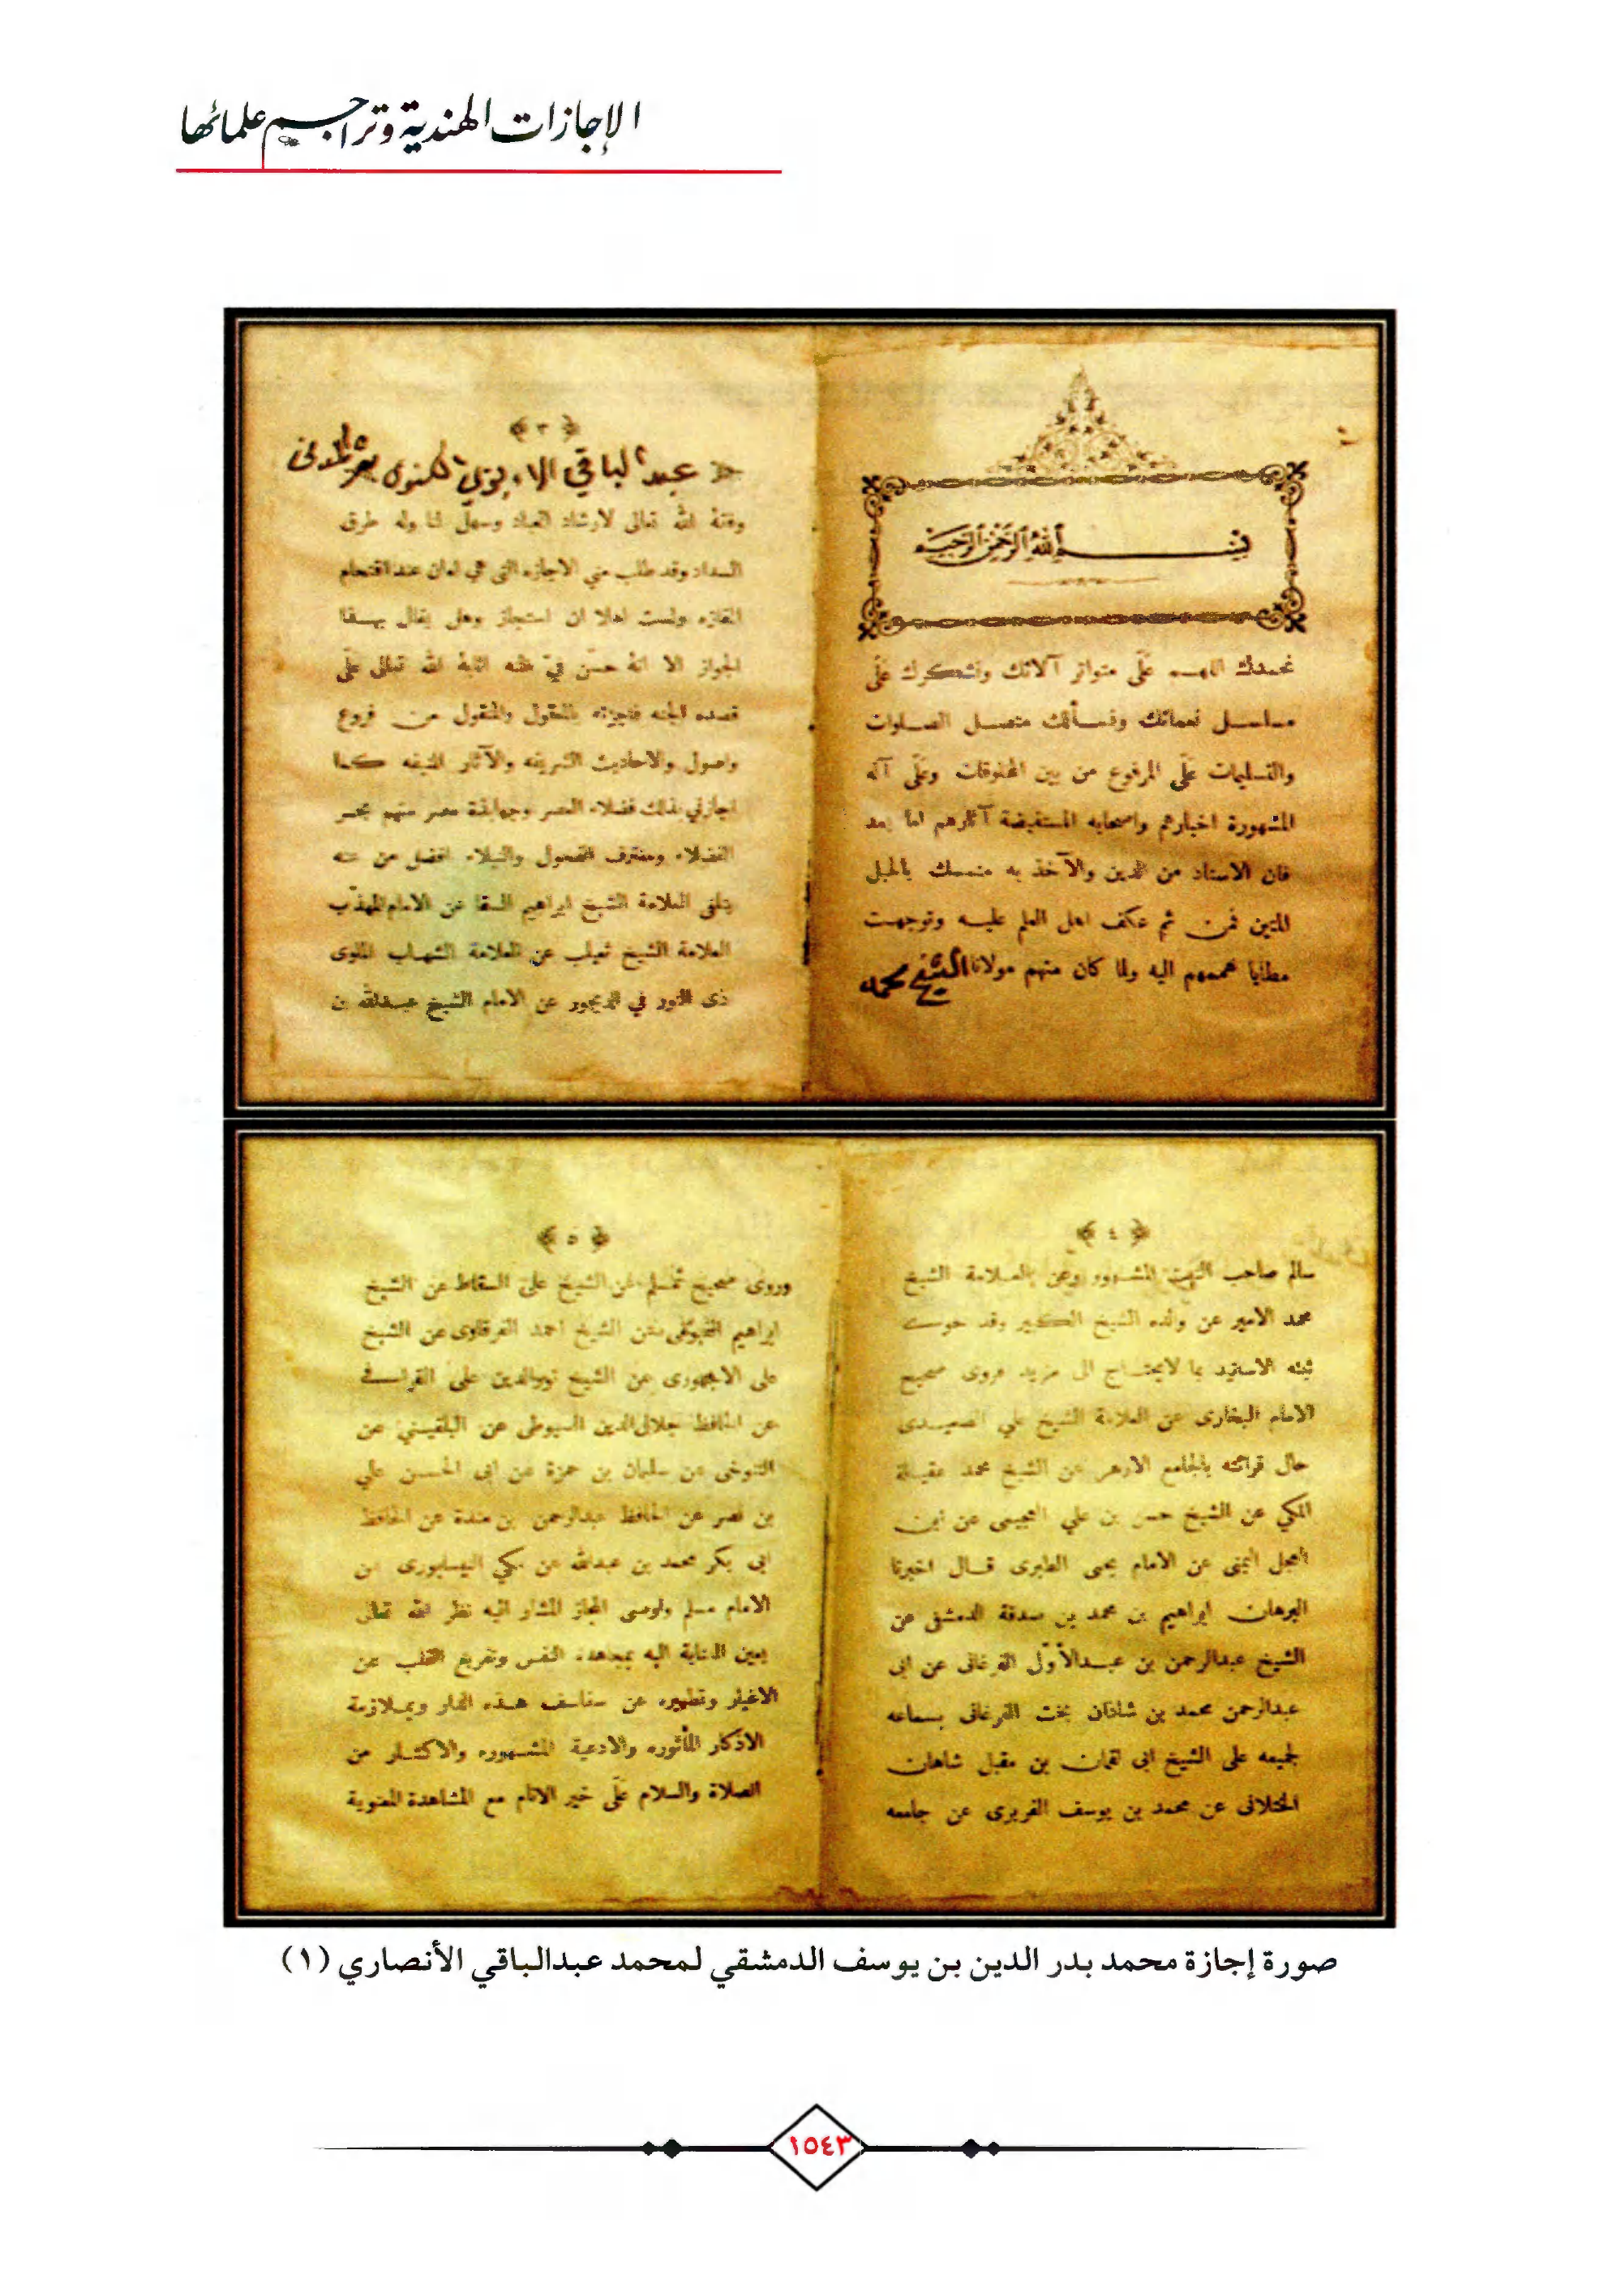 الإجازات الهندية وتراجم علمائها
بسم الله الرحمن الرحيم
نحمدك اللهم على متواتر آلائك ونشكرك على
سلسل نعمائك ونسألك متصل الصلوات
والتسليمات على المرفوع من بين المخلوقات وعلى آله
المشهورة اخبارهم واصحابه المستفيضة آثارهم اما بعد
فان الاسناد من الدين والآخذ به متمسك بالحبل
المتين فمن ثم عكف اهل العلم عليه وتوجهت
مطايا هممهم اليه ولما كان منهم مولانا الشيخ محمد
﴿ ٣ ﴾
عبد الباقي
وفقه الله تعالى لارشاد العباد وسهل لنا وله طرق
السداد وقد طلب مني الاجازه التي هي امان عند اقتحام
المفازه ولست اهلا ان استجاز وهل يقال بهذا
المجاز الا انه حسن في ظنه اثابه الله تعالى على
قصده الجنه فاجزته بالمعقول والمنقول من فروع
واصول والاحاديث الشريفه والآثار المنيفه كما
اجازني بذلك فضلاء العصر وجهابذة مصر منهم بحر
الفضلاء ومغترف الفحول والنبلاء افضل من عنه
يتلقى العلامة الشيخ ابراهيم السقا عن الامام المهذب
العلامة الشيخ ثعيلب عن العلامة الشهاب الملوى
ذى النور في الديجور عن الامام الشيخ عبدالله بن
﴿ ٤ ﴾
سالم صاحب الثبت المشهور وعن العلامة الشيخ
محمد الامير عن والده الشيخ الكبير وقد حوى
ثبته الاسانيد بما لايحتاج الى مزيد فروى صحيح
الامام البخارى عن العلامة الشيخ علي الصعيدى
حال قرائته بالجامع الازهر عن الشيخ محمد عقيلة
المكي عن الشيخ حسن بن علي العجيمى عن ابن
العجل اليمنى عن الامام يحيى الطبرى قال اخبرنا
البرهان ابراهيم بن محمد بن صدقة الدمشقى عن
الشيخ عبدالرحمن بن عبدالأول الفرغانى عن ابى
عبدالرحمن محمد بن شاذان بخت الفرغانى بسماعه
لجميعه على الشيخ ابى لقمان بن مقبل شاهان
الختلانى عن محمد بن يوسف الفربرى عن جامعه
﴿ ٥ ﴾
وروى صحيح مسلم عن الشيخ على السقاط عن الشيخ
ابراهيم الفيومى عن الشيخ احمد الغرقاوى عن الشيخ
على الاجهورى عن الشيخ نورالدين على القرافى
عن الحافظ جلال الدين السيوطى عن البلقينى عن
التنوخى عن سليمان بن حمزة عن ابى الحسن علي
بن نصر عن الحافظ عبدالرحمن بن مندة عن الحافظ
ابى بكر محمد بن عبدالله عن مكي النيسابورى عن
الامام مسلم واوصى المجاز المشار اليه نظر الله تعالى
بعين العناية اليه بمجاهدة النفس وتفريغ القلب عن
الاغيار وتطهيره عن سفاسف هذه الدار وبملازمة
الاذكار المأثوره والادعية المشهوره والاكثار من
الصلاة والسلام على خير الانام مع المشاهدة المعنوية
صورة إجازة محمد بدر الدين بن يوسف الدمشقي لمحمد عبدالباقي الأنصاري (١)
١٥٤٣